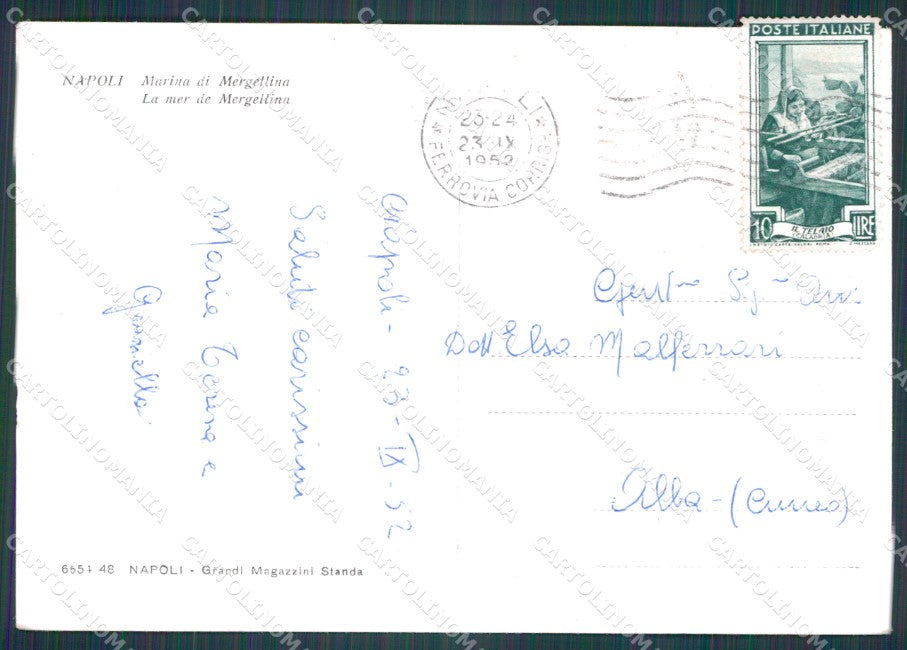 NAPOLI Marina di Mergellina
La mer de Mergellina
NAPOLI
23-24
23 IX
1952
FERROVIA CORRISP
POSTE ITALIANE
10 LIRE
IL TELAIO
(CALABRIA)
Napoli - 23 - IX - 52
Saluti carissimi
Maria Teresa e
Dott Elsa Malferrari
Alba - (Cuneo)
6654 48 NAPOLI - Grandi Magazzini Standa
CARTOLINOMANIA